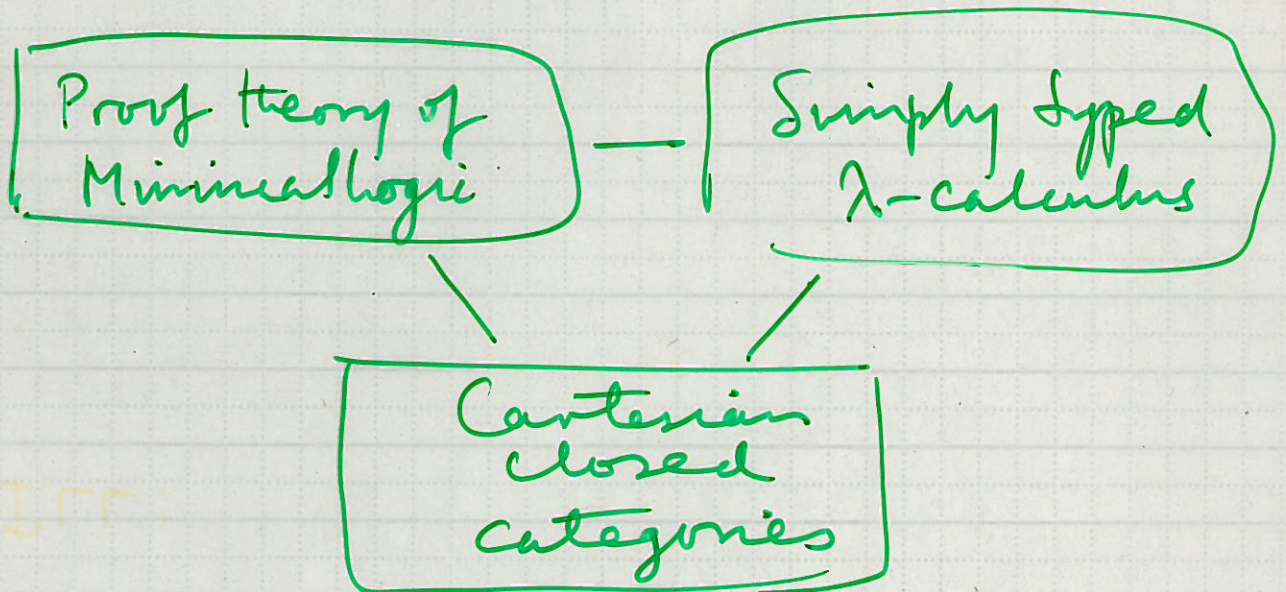 Proof theory of
Minimal logic
Simply typed
λ-calculus
Cartesian
closed
categories